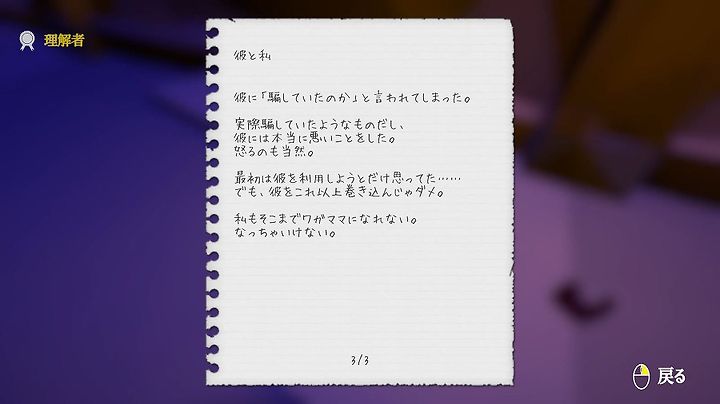 理解者
彼と私
彼に「騙していたのか」と言われてしまった。
実際騙していたようなものだし、
彼には本当に悪いことをした。
怒るのも当然。
最初は彼を利用しようとだけ思ってた……
でも、彼をこれ以上巻き込んじゃダメ。
私もそこまでワガママになれない。
なっちゃいけない。
3/3
戻る